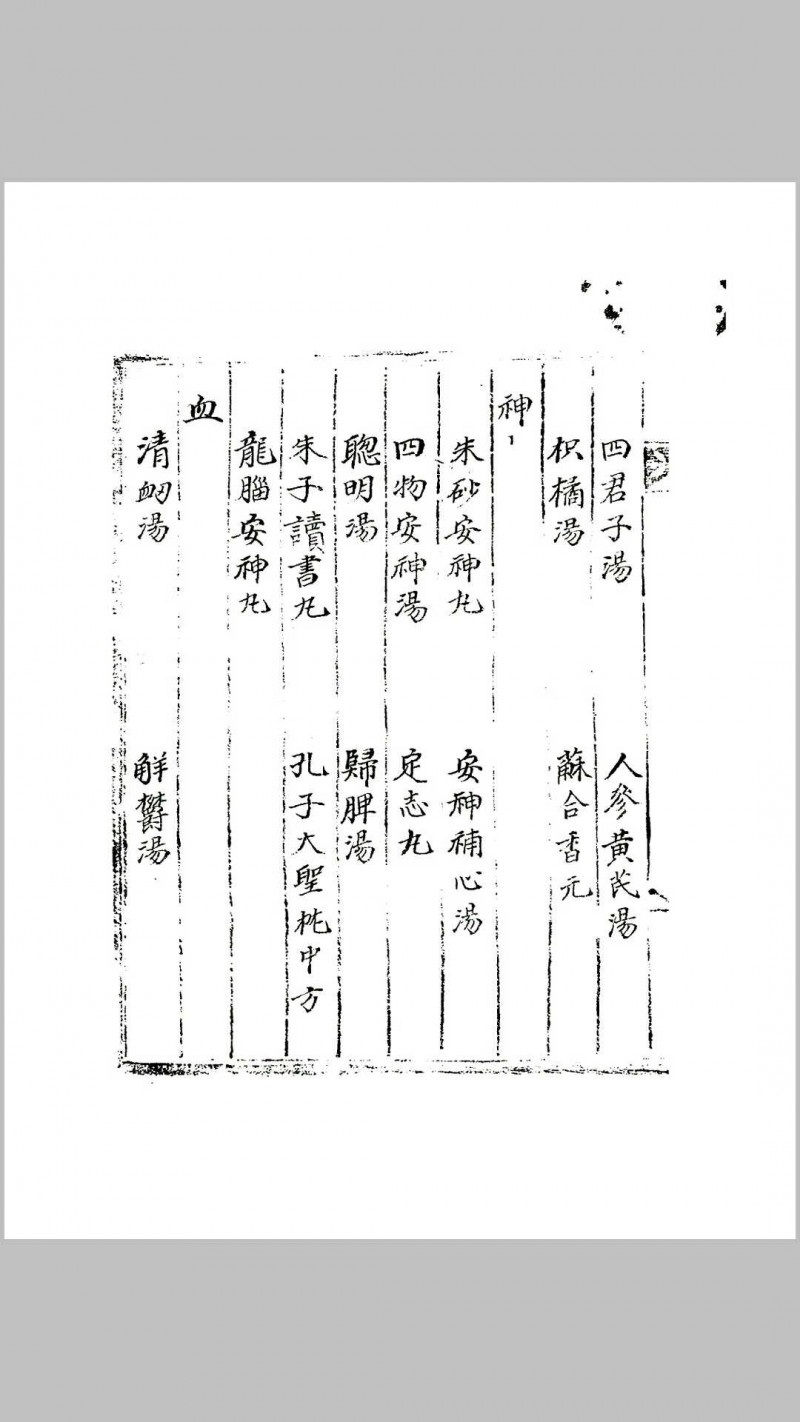 四君子湯　人參黃芪湯
枳橘湯　蘇合香元
神
朱砂安神丸　安神補心湯
四物安神湯　定志丸
聰明湯　歸脾湯
朱子讀書丸　孔子大聖枕中方
龍腦安神丸
血
清衂湯　解鬱湯